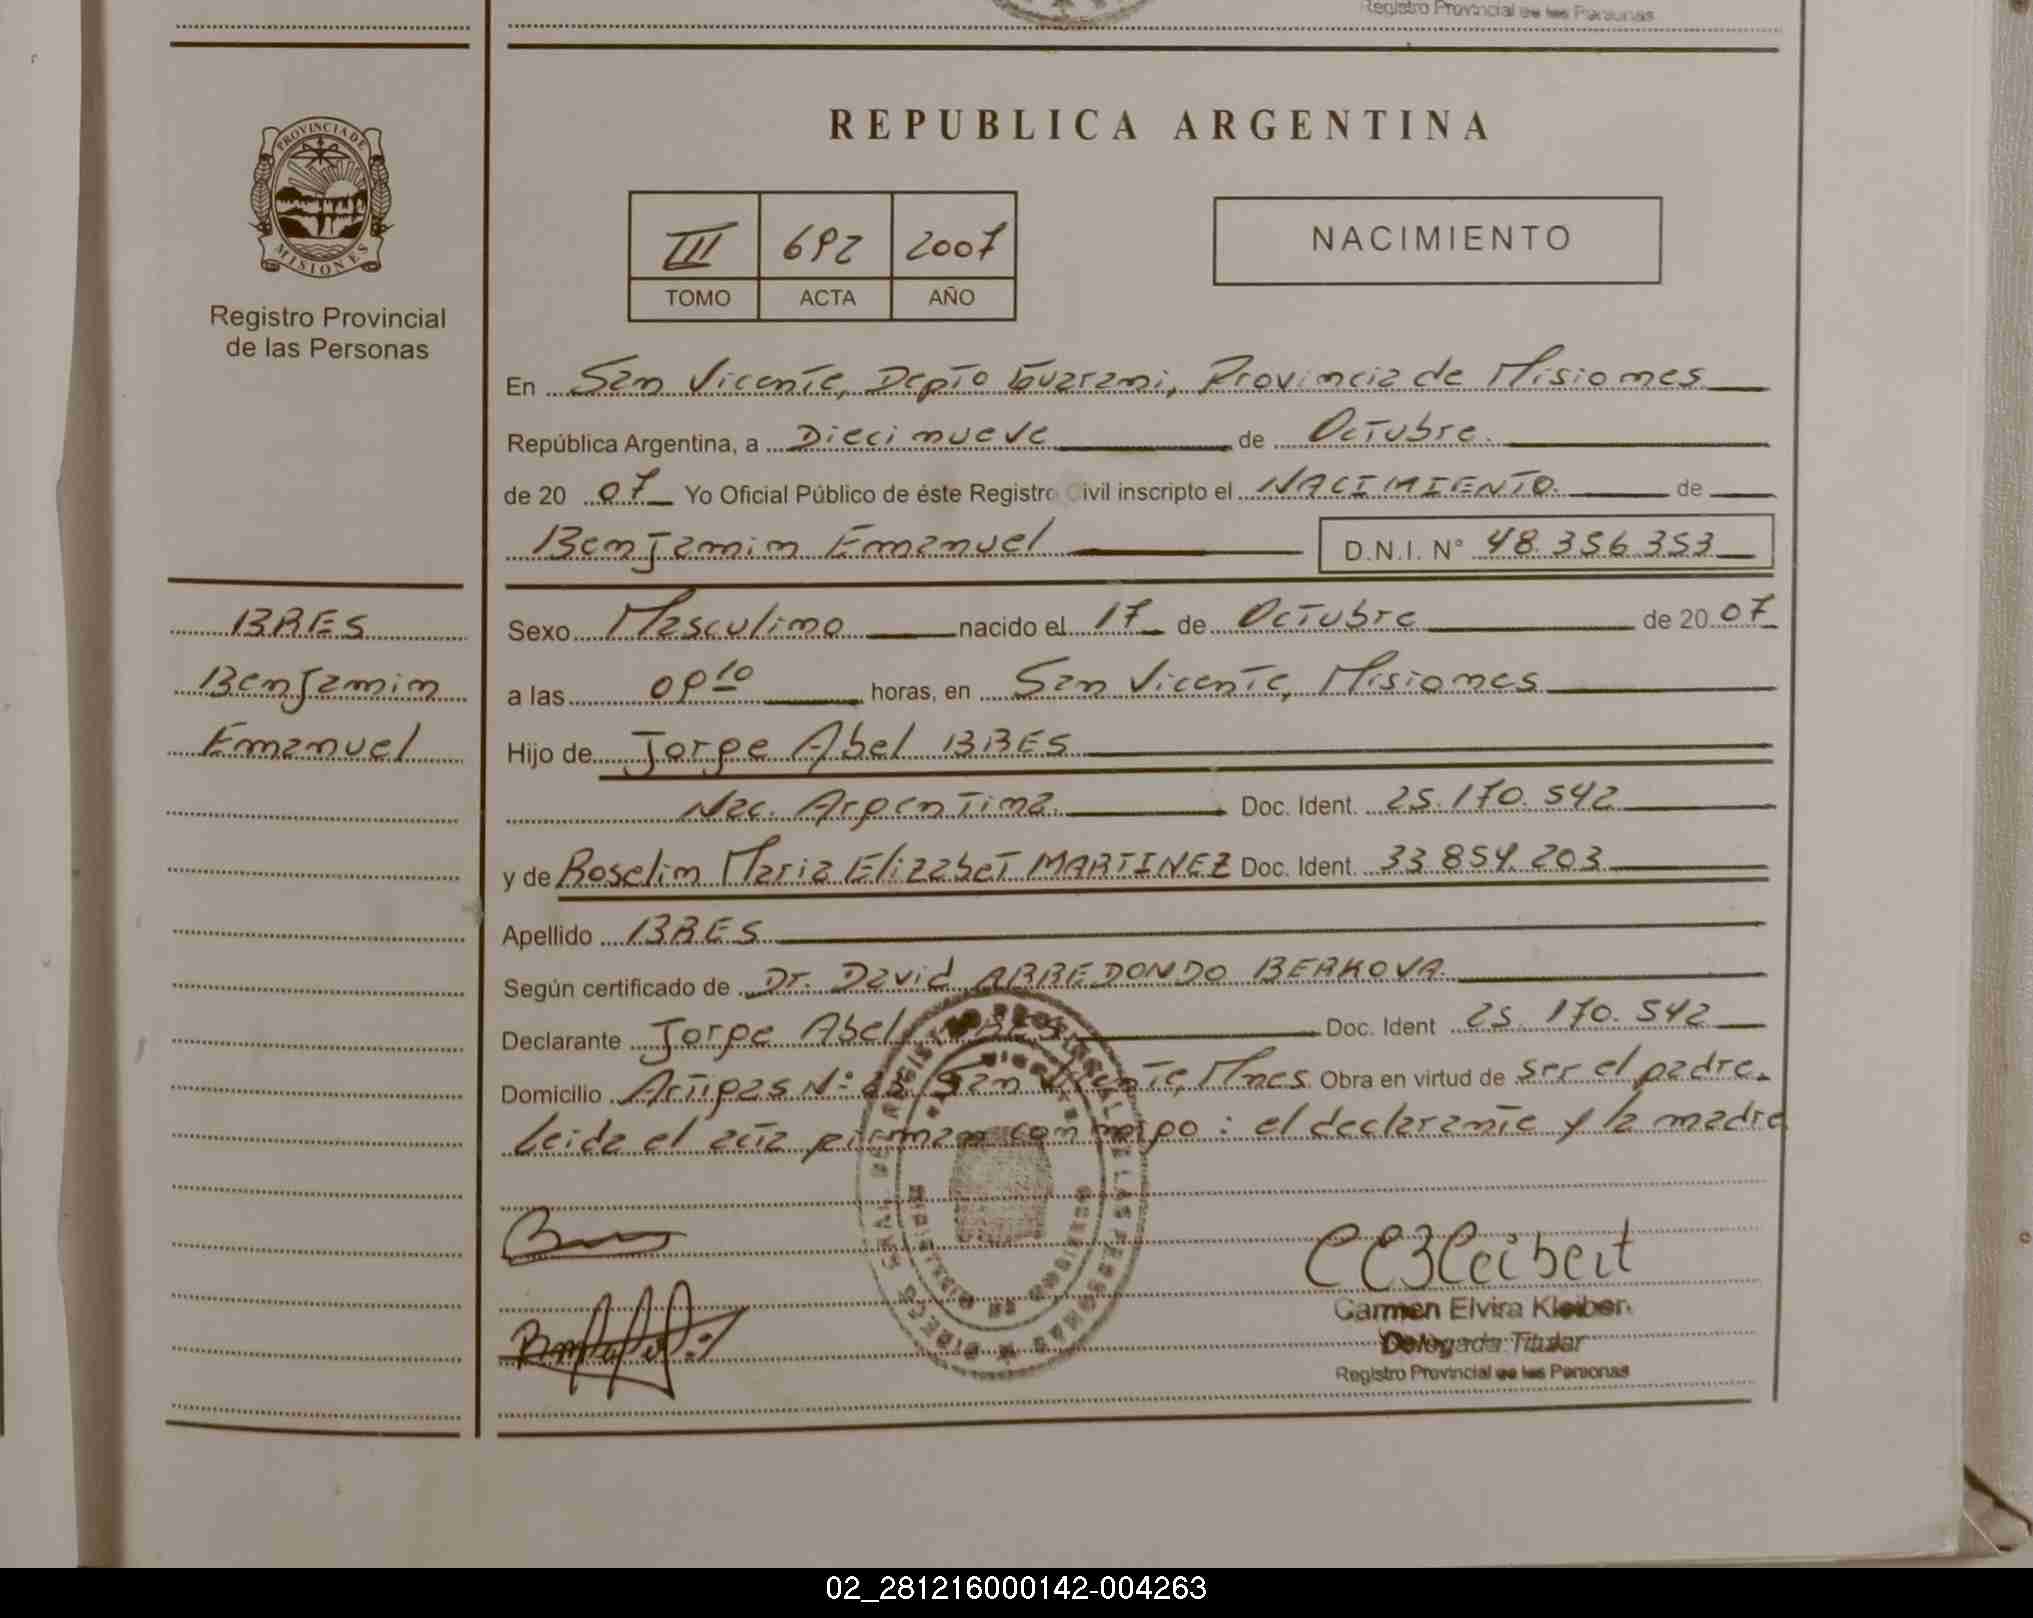 Registro Provincial de las Personas
PROVINCIA DE
MISIONES
Registro Provincial
de las Personas
REPUBLICA ARGENTINA
III 692 2007
TOMO ACTA AÑO
NACIMIENTO
En San Vicente, Depto Guarani, Provincia de Misiones
República Argentina, a Diecinueve de Octubre
de 20 07 Yo Oficial Público de éste Registro Civil inscripto el NACIMIENTO de
Benjamin Emanuel D.N.I. N° 48.356.353
BRES
Benjamin
Emanuel
Sexo Masculino nacido el 17 de Octubre de 20 07
a las 09 10 horas, en San Vicente, Misiones
Hijo de Jorge Abel BRES
Nac. Argentina. Doc. Ident. 25.170.542
y de Roselin Maria Elizabet MARTINEZ Doc. Ident. 33.859.203
Apellido BRES
Según certificado de Dr. David ARREDONDO BERKOVA.
Declarante Jorge Abel BRES Doc. Ident 25.170.542
Domicilio Artigas N° San Vicente, Mnes. Obra en virtud de ser el padre.
Leida el acta firman conmigo: el declarante y la madre
Carmen Elvira Kleiber
Delegada Titular
Registro Provincial de las Personas
02_281216000142-004263